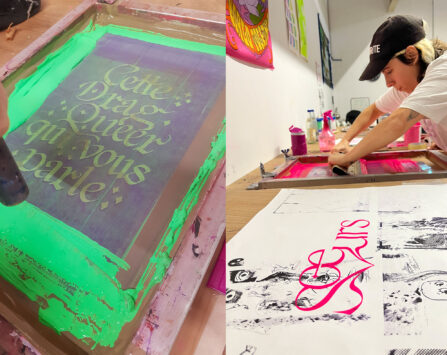 Cette
Drag
Queer
qui vous
parle
Sœurs